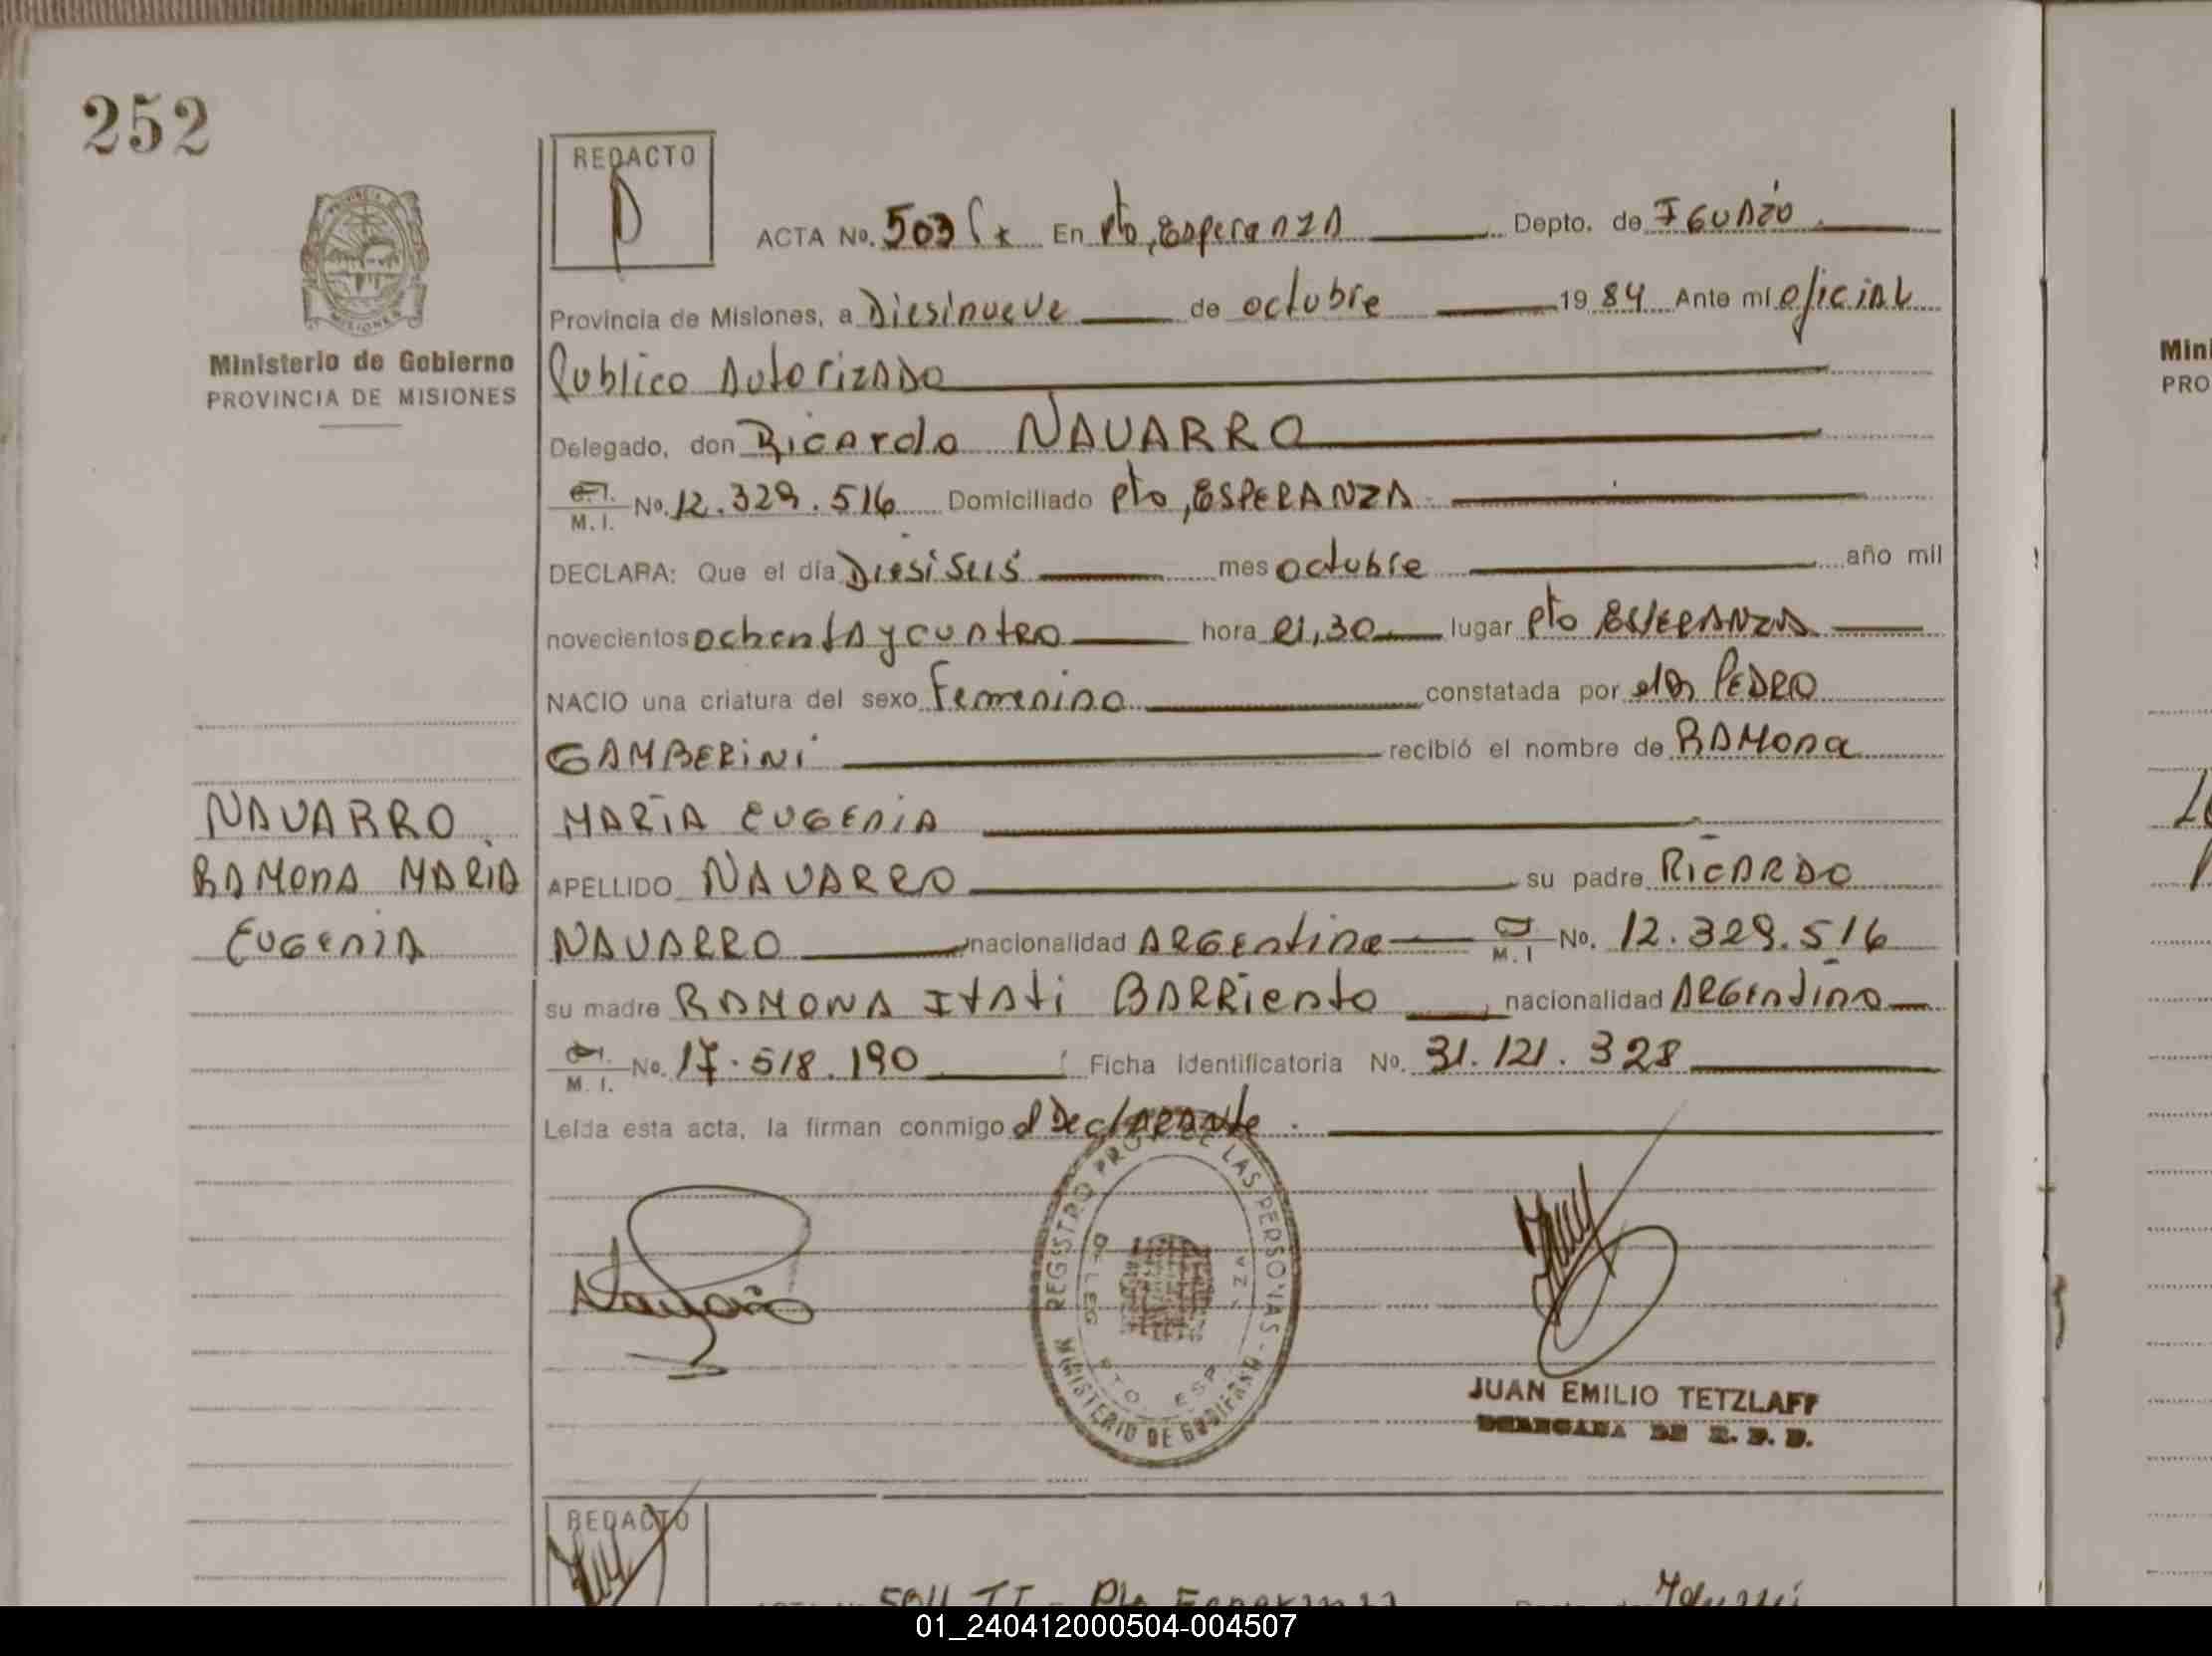 252
REDACTO
ACTA No. 503 En Pto, Esperanza Depto. de Iguazú
Provincia de Misiones, a Diesinueve de octubre 1984 Ante mi oficial
Ministerio de Gobierno
PROVINCIA DE MISIONES
Publico Autorizado
Delegado, don Ricardo NAVARRO
C.I. M.I. No. 12.329.516 Domiciliado Pto, ESPERANZA
DECLARA: Que el día Diesiseis mes octubre año mil
novecientos ochenta y cuatro hora 21,30 lugar Pto ESPERANZA
NACIO una criatura del sexo Femenino constatada por el Dr PEDRO
GAMBERINI recibió el nombre de RAMona
MARIA EUGENIA
APELLIDO NAVARRO su padre RICARDO
NAVARRO nacionalidad ARGentina M.I No. 12.329.516
su madre RAMONA Itati BARRiento, nacionalidad ARGentina
M.I. No. 17.518.190 Ficha Identificatoria No. 31.121.328
Leída esta acta, la firman conmigo el Declarante.
NAVARRO
RAMONA MARIA
EUGENIA
REGISTRO PROV. DE LAS PERSONAS - MINISTERIO DE GOBIERNO
DELEG
PTO ESP
JUAN EMILIO TETZLAFF
REDACTO
Mini
PRO
01_240412000504-004507